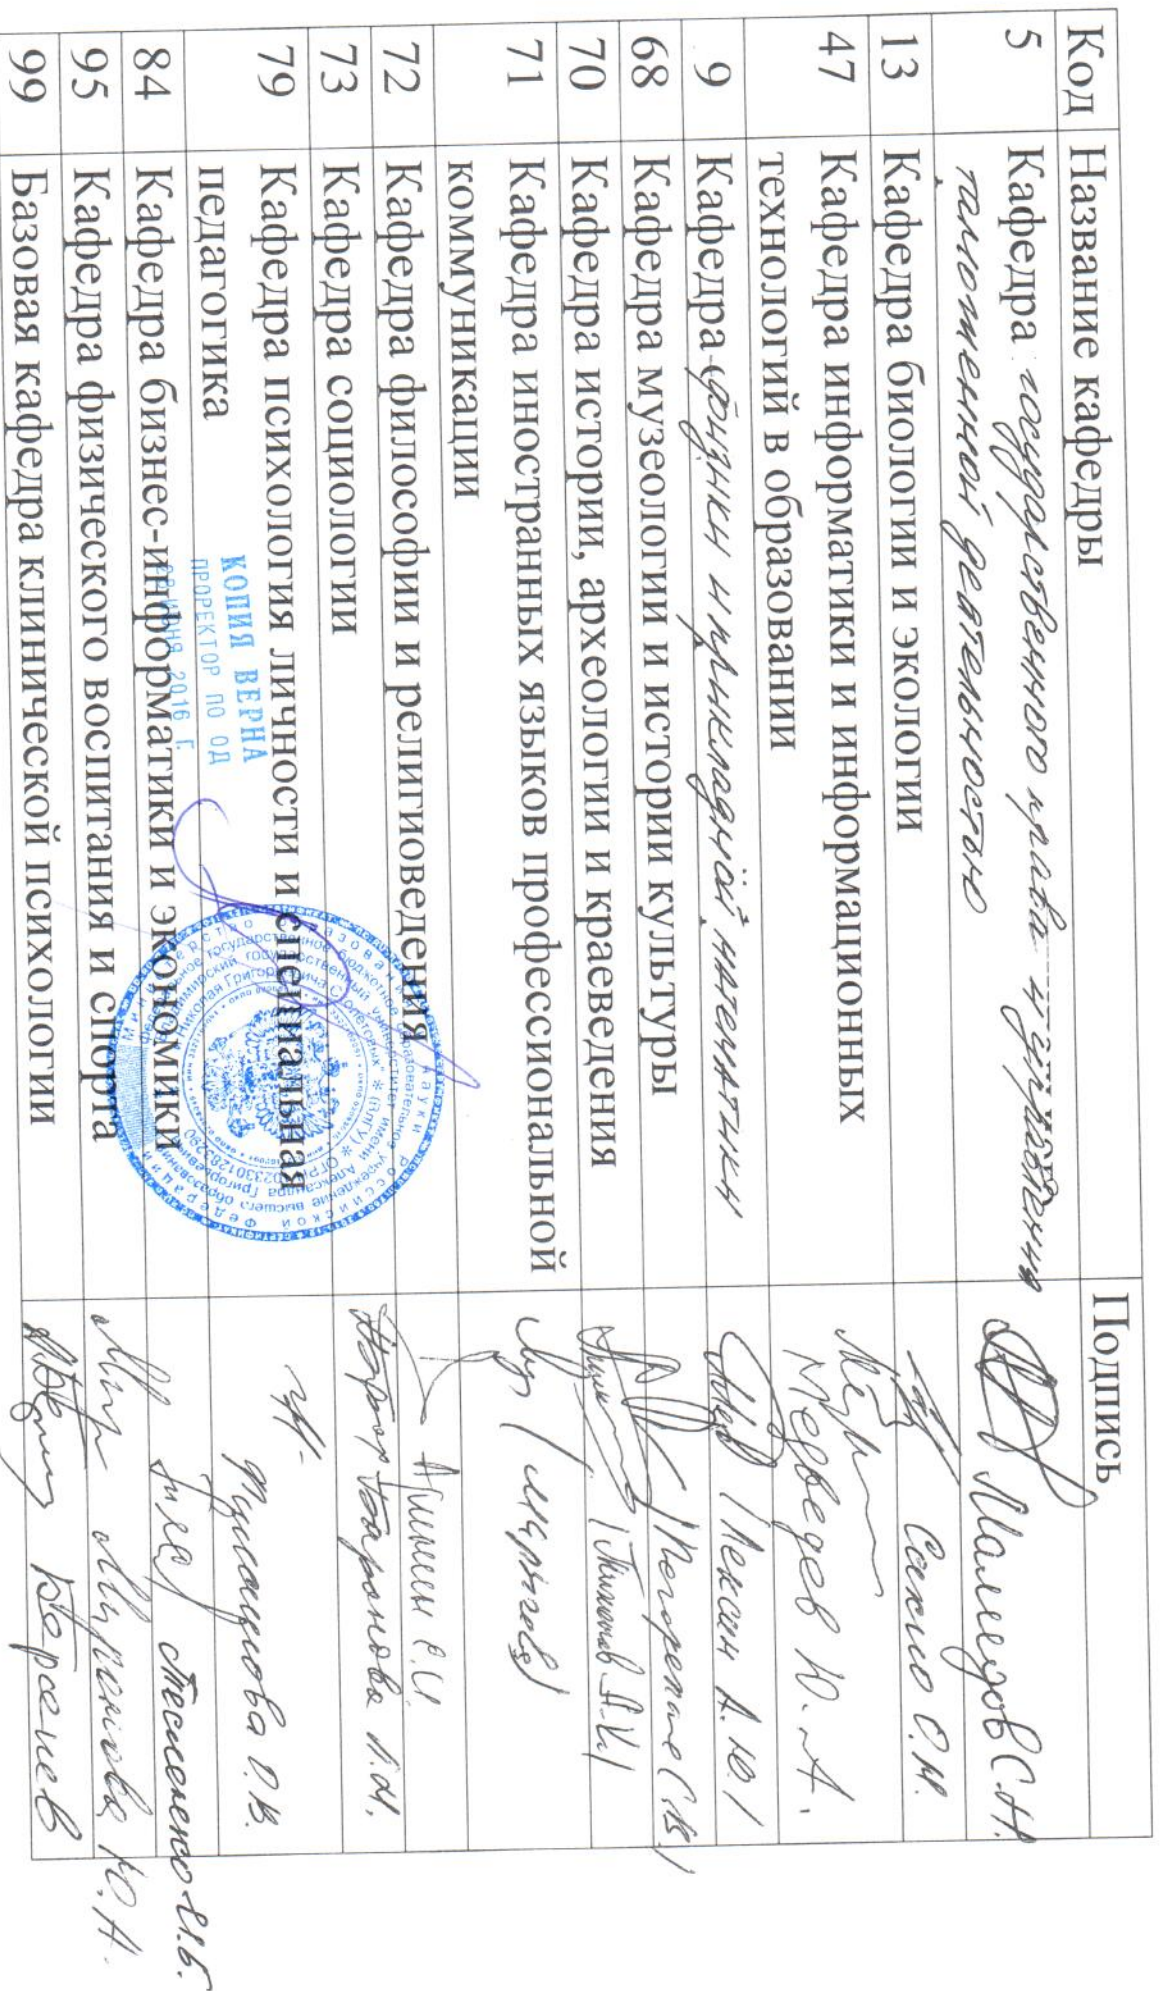 Код Название кафедры Подпись
5 Кафедра государственного права и управления
таможенной деятельностью Мамедов С.Н.
13 Кафедра биологии и экологии Сахно О.Н.
47 Кафедра информатики и информационных
технологий в образовании Медведев Ю.А.
9 Кафедра физики и прикладной математики Лексин А.Ю.
68 Кафедра музеологии и истории культуры
70 Кафедра истории, археологии и краеведения
71 Кафедра иностранных языков профессиональной
коммуникации
72 Кафедра философии и религиоведения Аринин Е.И.
73 Кафедра социологии
79 Кафедра психология личности и специальная
педагогика О.В.
84 Кафедра бизнес-информатики и экономики Тесленко И.Б.
95 Кафедра физического воспитания и спорта Ю.А.
99 Базовая кафедра клинической психологии
КОПИЯ ВЕРНА
ПРОРЕКТОР ПО ОД
ИЮНЯ 2016 Г.